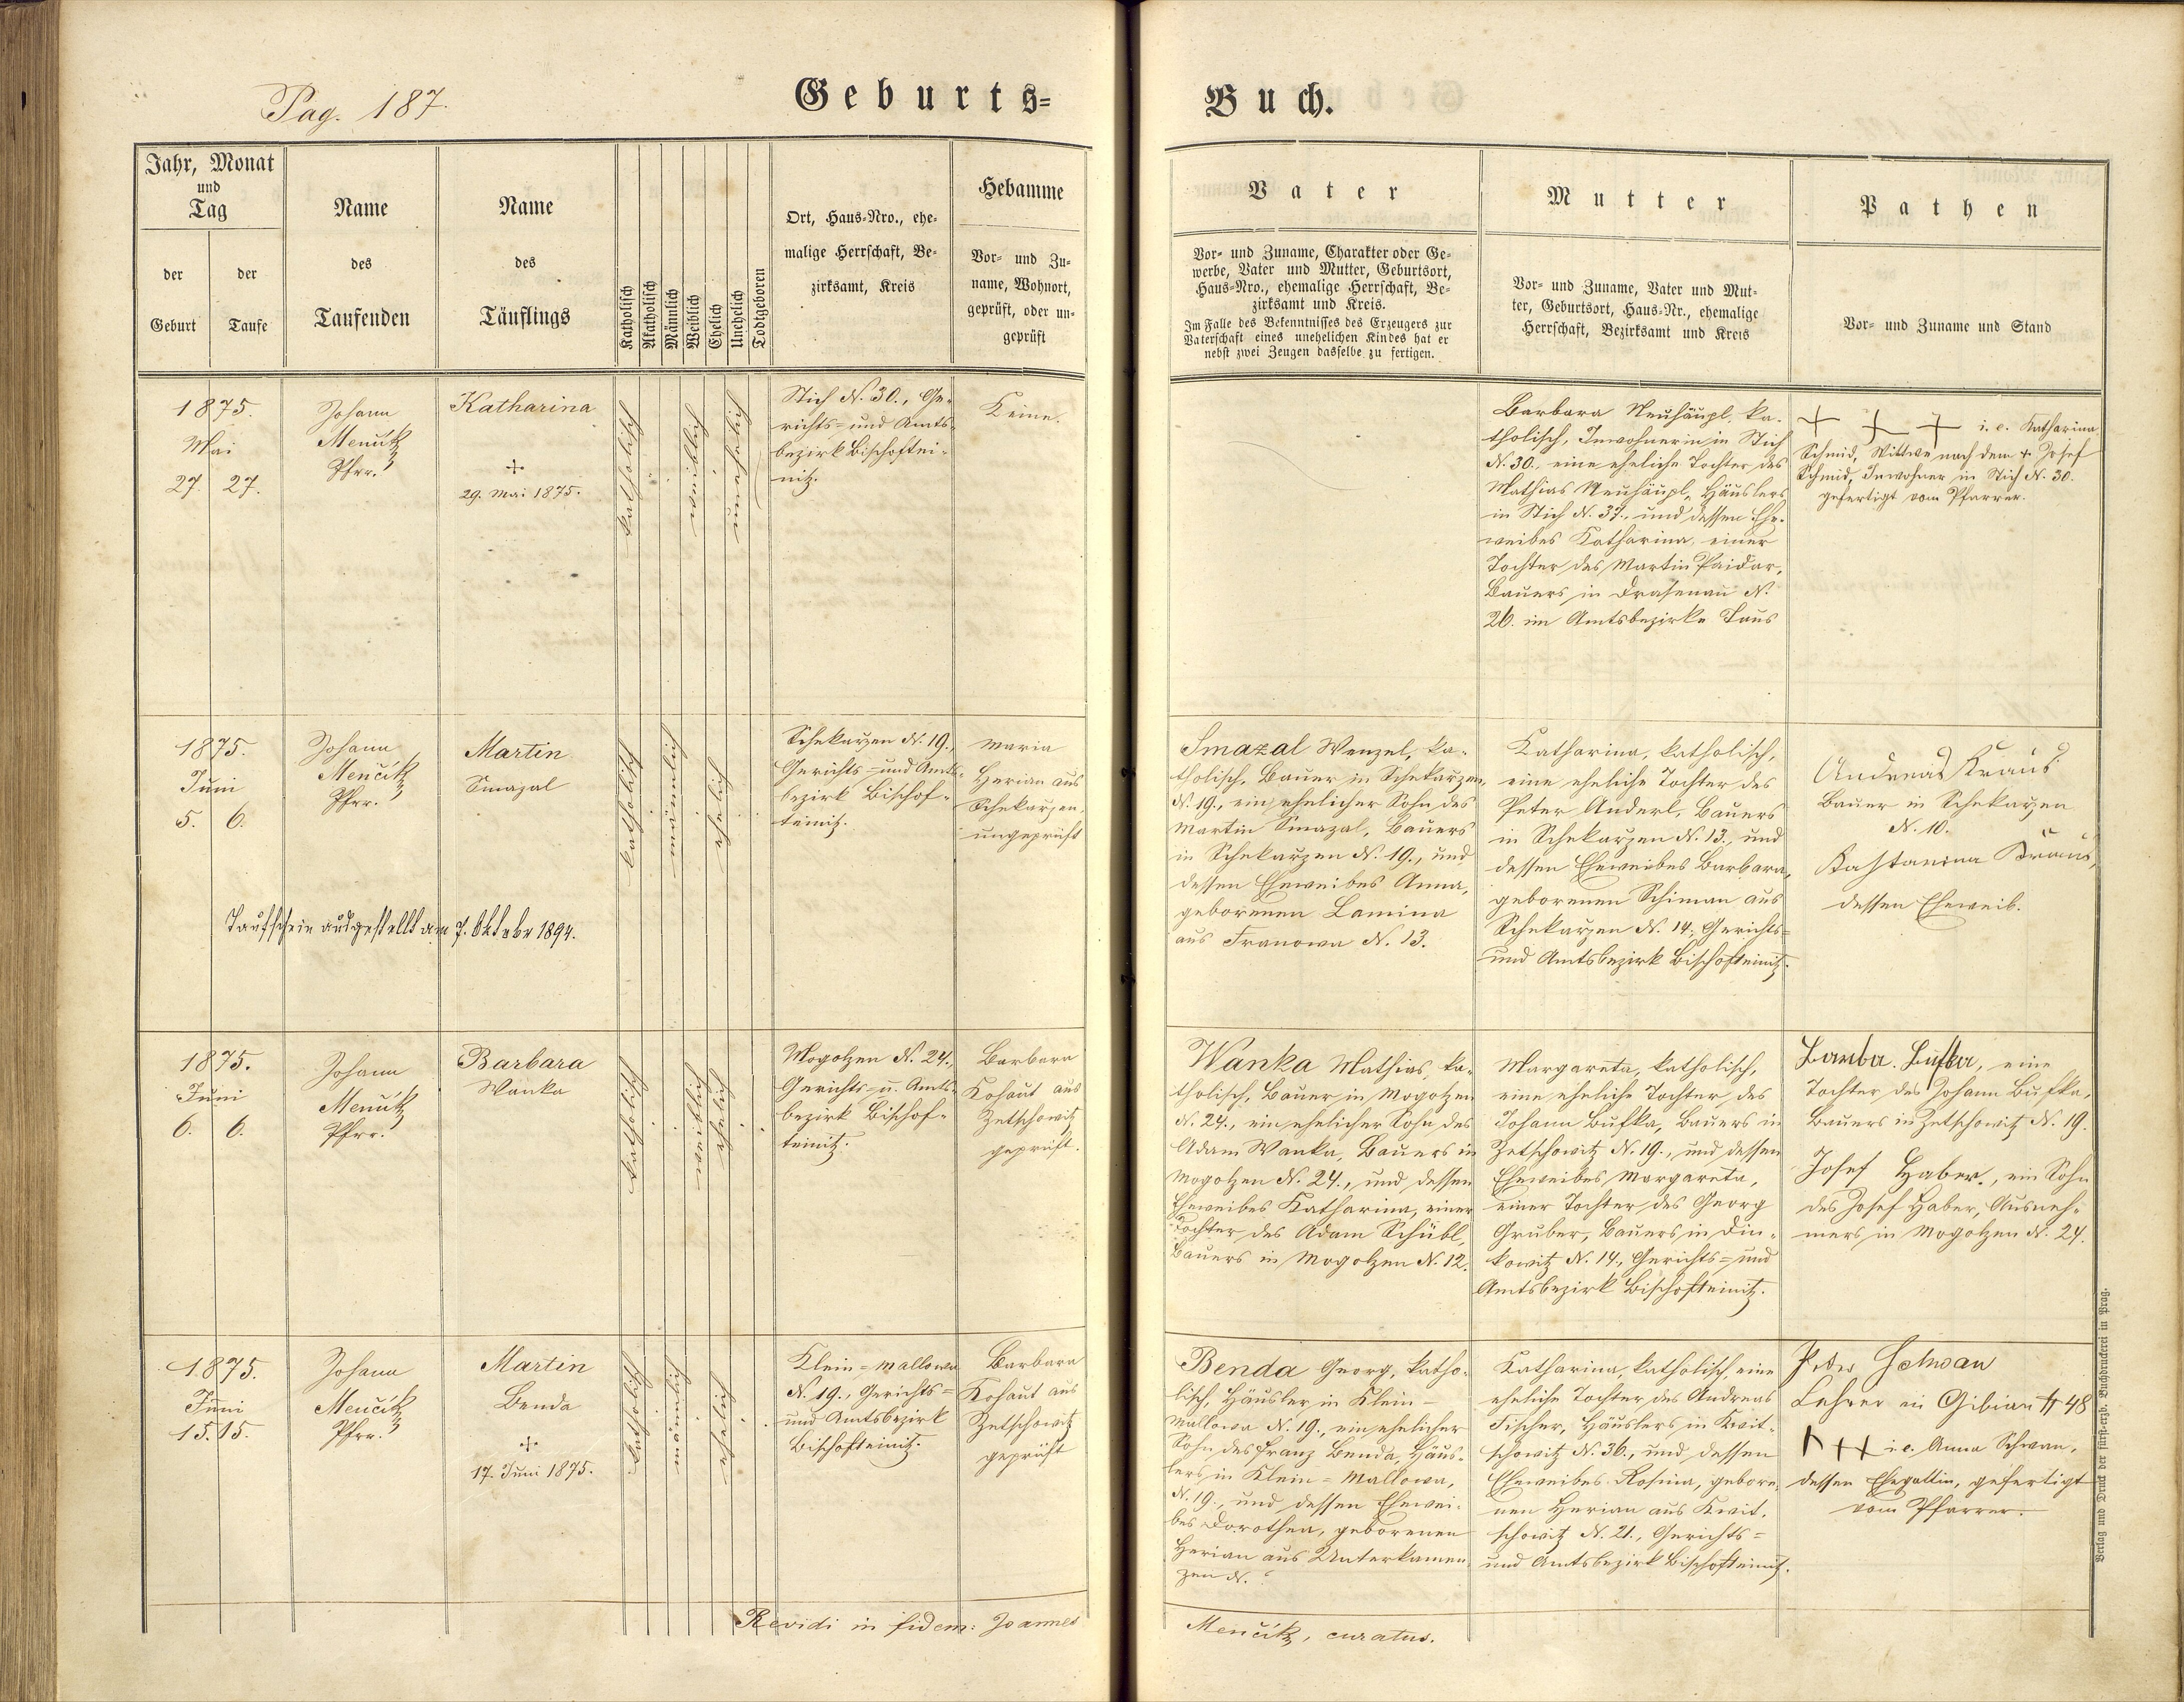 Pag. 187.
Geburts=
Buch.
Jahr, Monat
und
Tag
der
Geburt
der
Taufe
Name
des
Taufenden
Name
des
Täuflings
Katholisch
Akatholisch
Männlich
Weiblich
Ehelich
Unehelich
Todtgeboren
Ort, Haus-Nro., ehe-
malige Herrschaft, Be-
zirksamt, Kreis
Hebamme
Vor- und Zu-
name, Wohnort,
geprüft, oder un-
geprüft
Vater
Vor- und Zuname, Charakter oder Ge-
werbe, Vater und Mutter, Geburtsort,
Haus-Nro., ehemalige Herrschaft, Be-
zirksamt und Kreis.
Im Falle des Bekenntnisses des Erzeugers zur
Vaterschaft eines unehelichen Kindes hat er
nebst zwei Zeugen dasselbe zu fertigen.
Mutter
Vor- und Zuname, Vater und Mut-
ter, Geburtsort, Haus-Nr., ehemalige
Herrschaft, Bezirksamt und Kreis
Pathen
Vor- und Zuname und Stand
1875.
Mai
27. 27.
Johann
Menčik
Pfrr.
Katharina
+
29. Mai 1875.
katholisch
weiblich
unehelich
Stich N. 30., Ge-
richts- und Amts-
bezirk Bischoftei-
nitz.
Keine.
Barbara Neuhäupl, ka-
tholisch, Inwohnerin in Stich
N. 30., eine eheliche Tochter des
Mathias Neuhäupl, Häuslers
in Stich N. 37., und dessen Ehe-
weibes Katharina, einer
Tochter des Martin Paidar,
Bauers in Drasenau N.
26. im Amtsbezirke Taus
+ + + i. e. Katharina
Schmid, Wittwe nach dem + Josef
Schmid, Inwohner in Stich N. 30.
gefertigt vom Pfarrer.
1875.
Juni
5. 6.
Johann
Menčik
Pfrr.
Martin
Smazal
katholisch
männlich
ehelich
Schekarzen N. 19.,
Gerichts- und Amts-
bezirk Bischof-
teinitz.
Maria
Herian aus
Schekarzen,
ungeprüft
Taufschein ausgestellt am 7. Oktobr 1894.
Smazal Wenzel, ka-
tholisch, Bauer in Schekarzen,
N. 19., ein ehelicher Sohn des
Martin Smazal, Bauers
in Schekarzen N. 19., und
dessen Eheweibes Anna,
geborenen Lamina
aus Franowa N. 13.
Katharina, katholisch,
eine eheliche Tochter des
Peter Anderl, Bauers
in Schekarzen N. 13., und
dessen Eheweibes Barbara,
geborenen Schiman aus
Schekarzen N. 14., Gerichts-
und Amtsbezirk Bischofteinitz.
Andreas Kraus
Bauer in Schekarzen
N. 10.
Kathanina Kraus,
dessen Eheweib.
1875.
Juni
6. 6.
Johann
Menčik
Pfrr.
Barbara
Wanka
katholisch
weiblich
ehelich
Mogolzen N. 24.,
Gerichts- u. Amts-
bezirk Bischof-
teinitz.
Barbara
Kohaut aus
Zetschowitz
geprüft.
Wanka Mathias, ka-
tholisch, Bauer in Mogolzen
N. 24., ein ehelicher Sohn des
Adam Wanka, Bauers in
Mogolzen N. 24., und dessen
Eheweibes Katharina, einer
Tochter des Adam Schübl,
Bauers in Mogolzen N. 12.
Margareta, katholisch,
eine eheliche Tochter des
Johann Bufka, Bauers in
Zetschowitz N. 19., und dessen
Eheweibes Margareta,
einer Tochter des Georg
Gruber, Bauers in Din-
kowitz N. 14., Gerichts- und
Amtsbezirk Bischofteinitz.
Barba. Bufka, eine
Tochter des Johann Bufka,
Bauers in Zetschowitz N. 19.
Josef Haber., ein Sohn
des Josef Haber, Ausneh-
mers in Mogolzen N. 24.
1875.
Juni
15. 15.
Johann
Menčik
Pfrr.
Martin
Benda
+
17. Juni 1875.
katholisch
männlich
ehelich
Klein-Mallowa
N. 19., Gerichts-
und Amtsbezirk
Bischofteinitz.
Barbara
Kohaut aus
Zetschowitz
geprüft
Benda Georg, katho-
lisch, Häusler in Klein-
Mallowa N. 19., ein ehelicher
Sohn des Franz Benda, Häus-
lers in Klein-Mallowa,
N. 19., und dessen Ehewei-
bes Dorothea, geborenen
Herian aus Unterkamen-
zen N. ?
Katharina, katholisch, eine
eheliche Tochter des Andreas
Fischer, Häuslers in Kwit-
schowitz N. 36., und dessen
Eheweibes Rosina, gebore-
nen Herian aus Kwit-
schowitz N. 21., Gerichts-
und Amtsbezirk Bischofteinitz.
Peter Schwan
Lehrer in Gibian # 48
+++ i. e. Anna Schwan,
dessen Ehegattin, gefertigt
vom Pfarrer.
Revidi in fidem: Joannes
Menčik, curatus.
Verlag und Druck der fürst-erzb. Buchdruckerei in Prag.